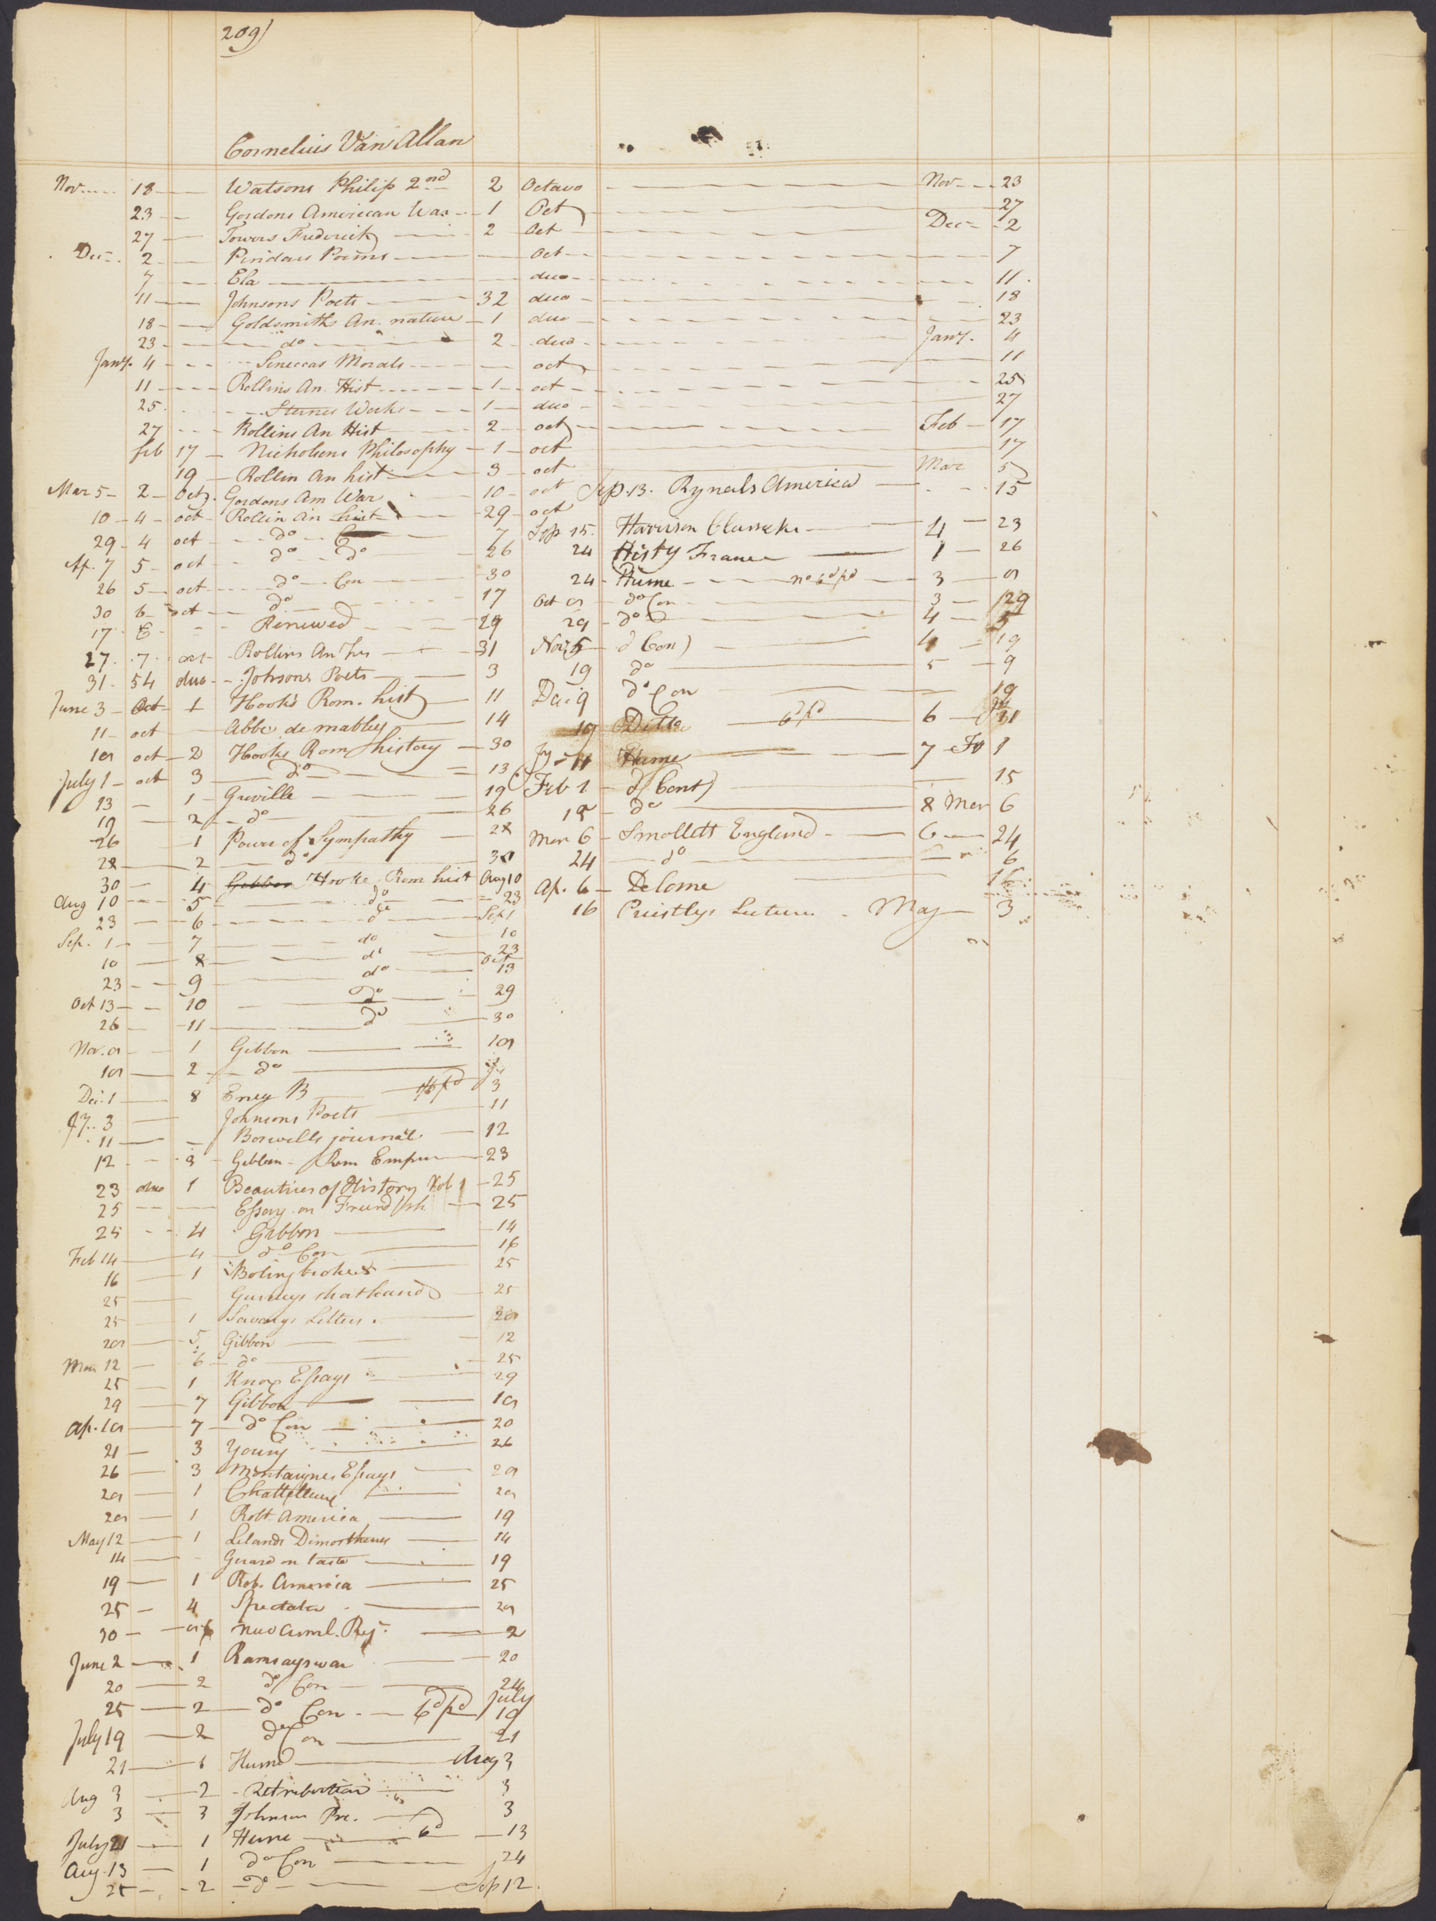 209)
Cornelius Van Allan
Nov 18 Watsons Philip 2nd 2 Octavo Nov 23
23 Gordons American War 1 Oct 27
27 Towers Frederick 2 Oct Dec 2
Dec 2 Pindars Poems Oct 7
7 Ela duo 11
11 Johnsons Poets 32 duo 18
18 Goldsmiths An. nature 1 duo 23
23 do 2 duo Jany. 4
Jany. 4 Seneccas Morals oct 11
11 Rollins An. Hist 1 oct 25
25 Sternes Works 1 duo 27
27 Rollins An Hist 2 oct Feb 17
feb 17 Nicholsons Philosophy 1 oct 17
19 Rollin An hist 3 oct Mar 5
Mar 5 2 Oct. Gordons Am War 10 oct Sep. 13. Rynals America 15
10 4 oct Rollin An hist 29 oct
29 4 oct do 7 Sep 15. Harrison 4 23
Ap. 7 5 oct do do 26 24 Histy France 1 26
26 5 oct do Con 30 24 Hume no 6d pd 3 9
30 6 oct do 17 Oct 9 do Con 3 29
17 6 Renewed 29 29 do 4 5
27 7 oct Rollins An his 31 Nov 5 d Con) 4 19
31 54 duo Johsons Poets 3 19 do 5 9
June 3 Oct 1 Hooks Rom. hist 11 Dec 9 do Con 19
11 oct Abbe de mabley 14 19 Ditto 6d pd 6 31
19 oct 2 Hooks Rom history 30 Jy 11 Hume 7 Fe 1
July 1 oct 3 do 13 Feb 1 d (Cont) 15
13 1 Greville 19 15 do 8 Mar 6
19 2 do 26 Mar 6 Smollett England 6 24
26 1 Power of Sympathy 28 24 do 6
28 2 do 30 Ap. 6 Delome 16
30 4 Gebbon Hooke Rom hist Aug 10 16 Priestlys Lectures May 3
Aug 10 5 do 23
23 6 do Sep 1
Sep. 1 7 do 10
10 8 do 23
23 9 do Oct 13
Oct 13 10 do 29
26 11 do 30
Nov. 9 1 Gibbon 19
19 2 do
Dec. 1 8 Ency B 3
Jy. 3 Johnsons Poets 11
11 Boswells journal 12
12 3 Gibbon Rom Empire 23
23 duo 1 Beauties of History Vol 1 25
25 Essay on Friendship 25
25 4 Gibbon 14
Feb 14 4 do Con 16
16 1 Bolingbrokes 25
25 Gurneys shorthand 25
25 1 Savarys Letters 29
29 5 Gibbon 12
Mar 12 6 do 25
25 1 Knox Essays 29
29 7 Gibbon 19
Ap. 19 7 do Con 20
21 3 Young 26
26 3 Montaignes Essays 29
29 1 Chattelleux 29
29 1 Robt America 19
May 12 1 Lelands Dimosthenes 14
14 Gerard on taste 19
19 1 Rob. America 25
25 4 Spectator 29
30 nuo Anml. Reg. 2
June 2 1 Ramsays war 20
20 2 do Con 24
25 2 do Con 6d pd July 19
July 19 2 do Con 21
21 1 Hume Aug 3
Aug 3 2 Retribution 3
3 3 Johnson Pre. 3
July 21 1 Hume 6d 13
Aug. 13 1 do Con 24
25 2 do Sep 12.